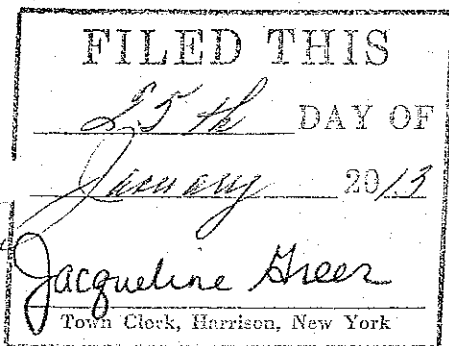 FILED THIS
25th DAY OF
January 2013
Jacqueline Greer
Town Clerk, Harrison, New York